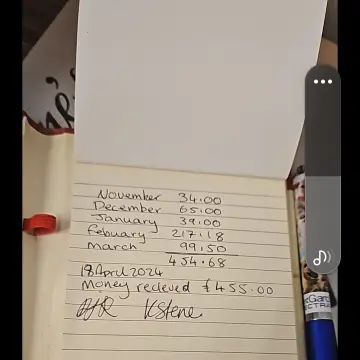 November 34.00
December 65.00
January 39.00
febuary 217.18
march 99.50
454.68
18 April 2024
Money recieved £455.00